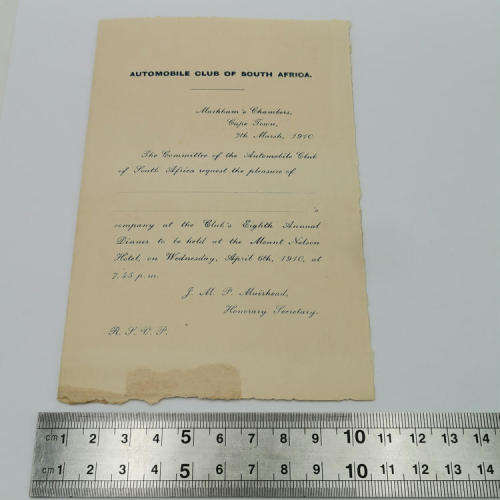 AUTOMOBILE CLUB OF SOUTH AFRICA.
Markham's Chambers,
Cape Town,
9th March, 1910.
The Committee of the Automobile Club
of South Africa request the pleasure of
's
company at the Club's Eighth Annual
Dinner to be held at the Mount Nelson
Hotel, on Wednesday, April 6th, 1910, at
7.45 p.m.
J. M. P. Muirhead,
Honorary Secretary.
R. S. V. P.
cm 1 2 3 4 5 6 7 8 9 10 11 12 13 14
cm 1 2 3 4 5 6 7 8 9 10 11 12 13 14